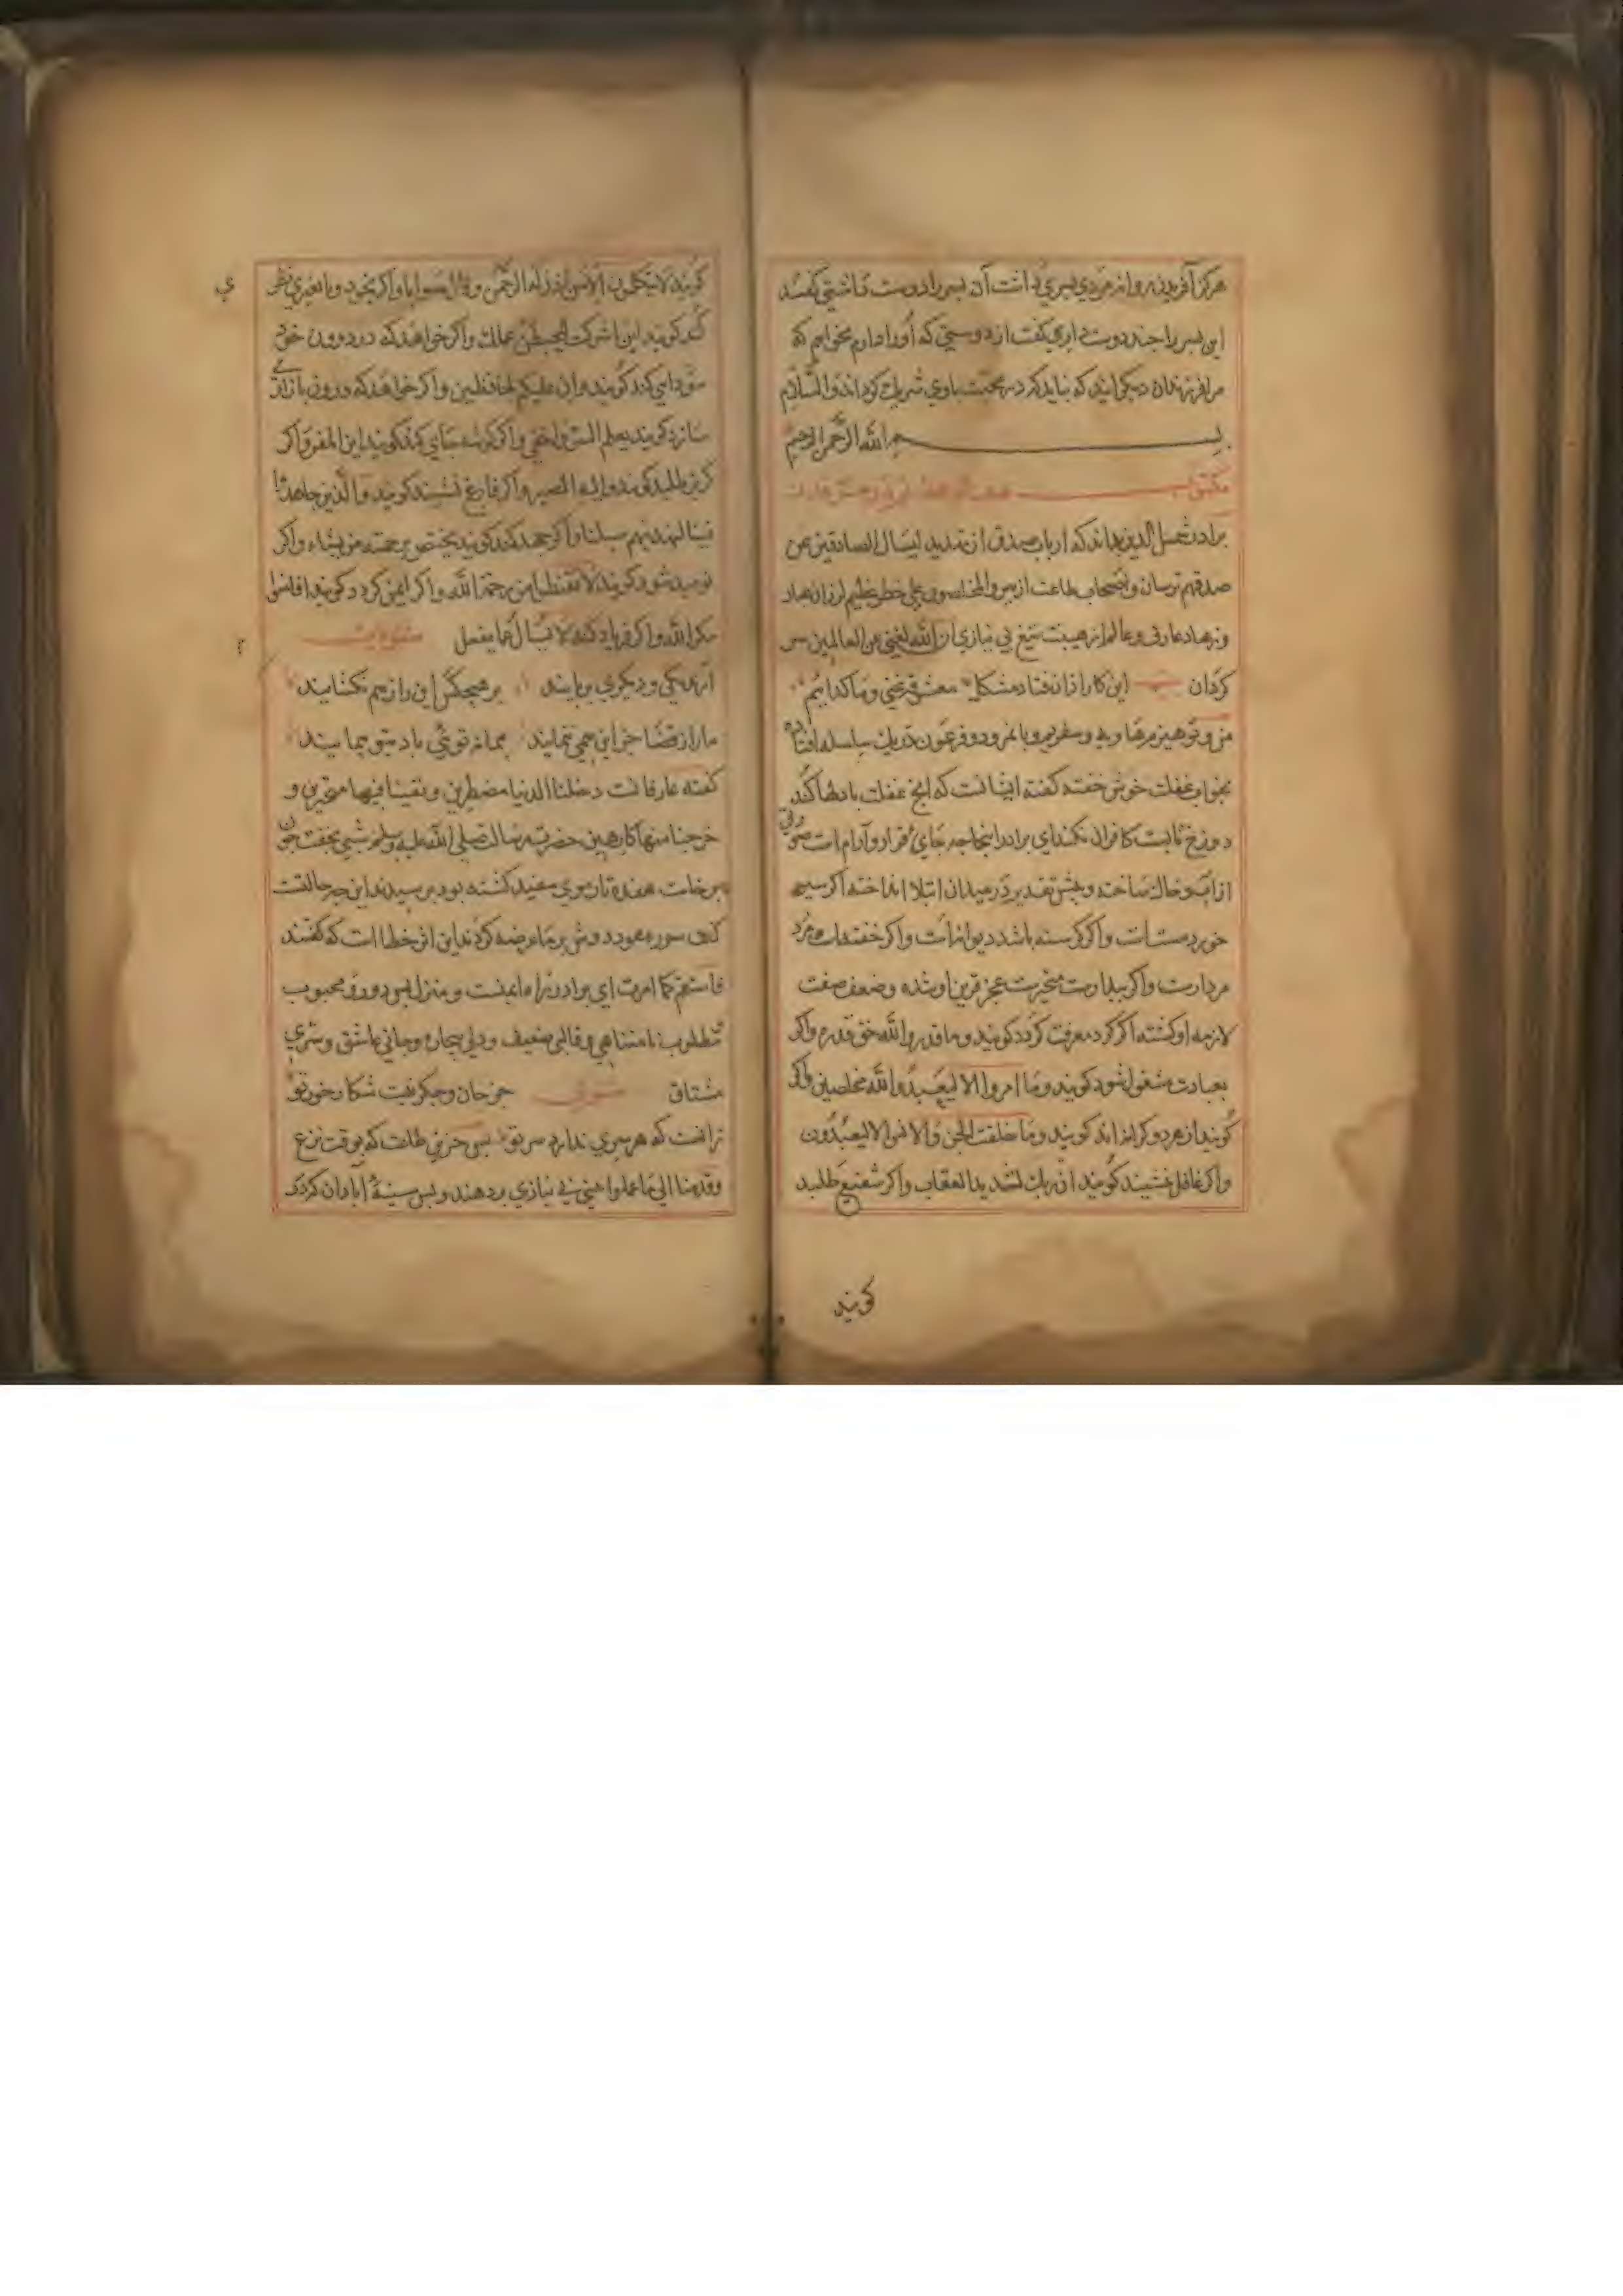 هرکز آفریند روا نه مردی پسری داشت آن پسر را دوست داشتی گفتند
این پسر را چند دوست داری گفت از دوستی که او را دارم نخواهم که
مرا فرزندان دیگر آیند که نباید که در محبت با وی شریک گردانند والسلام
بسم الله الرحمن الرحیم
مکتوب
برادر شمس الدین بداند که ارباب صدق از تهدید لیسأل الصادقین عن
صدقهم ترسان و اصحاب طاعت از بیم والمخلصون علی خطر عظیم لرزان
و زهاد عارف و عالم از هیبت تیغ بی نیازی ان الله لغنی عن العالمین سر
کردان این کار از آن فتاد مشکل معشوق غنی و ما گداییم
بخواب غفلت خوش خفته گفته ایشانست که آنچ غفلت با دلها کند
دوزخ تابت کافران نکند ای برادر اینجا چه جای قرار و آرام است
از آب و خاک ساخته و پیش تقدیر در میدان ابتلا انداخته اگر سیر
خورد مست است و اگر گرسنه باشد دیوانه است و اگر خفته است
مردارست و اگر بیدارست متحیرست عجز قرین او شده و ضعف صفت
لازمه او گشته اگر گرد معرفت گردد گویند و ما قدروا الله حق قدره و اگر
بعبادت مشغول شود گویند و ما امروا الا لیعبدوا الله مخلصین و اگر
گوید از هر دو کرانه اند گویند و ما خلقت الجن والانس الا لیعبدون
و اگر غافل نشیند گویند ان ربک لشدید العقاب و اگر شفیع طلبد
گویند
گویند لا یتکلمون الا من اذن له الرحمن و قال صوابا و اگر بخود و یا بغیری نظر
کند گویند لئن اشرکت لیحبطن عملک و اگر خواهد که در درون خود
سودایی کند گویند و ان علیکم لحافظین و اگر خواهد که درون
سازد گویند یعلم السر و اخفی و اگر گوشه جای کند گویند این المفر و اگر
گریز طلبد گویند و الیه المصیر و اگر فارغ نشیند گویند والذین جاهدوا
فینا لنهدینهم سبلنا و اگر جهد کند گویند یختص برحمته من یشاء و اگر
نومید شود گویند لا تقنطوا من رحمة الله و اگر ایمن گردد گویند افامنوا
مکر الله و اگر فریاد کند لا یسأل عما یفعل
آرند یکی و دیگری بربایند بر هیچکس این راز هم نکشایند
ما را از قضا جز این می ننمایند
گفته عارفانست دخلنا الدنیا مضطرین و بقینا فیها متحیرین و
خرجنا منها کارهین حضرت رسالت صلی الله علیه و سلم شبی بخفت چون
برخاست هفده تار موی سفید گشته بود پرسیدند این چه حالتست
گفت سوره هود دوش بر ما عرضه کردند این اثر خطابست که گفتند
فاستقم کما امرت ای برادر راه ناایمنست و منزل بس دور و محبوب
مطلوب نامتناهی و قالبی ضعیف و دلی بیچاره و جانی عاشق و سری
مشتاق جز جان و جگر نیست شکار خور تو
زانست که هر سری ندارد سر تو بسی طاعت که بوقت نزع
وقدمنا الی ما عملوا بی نیازی بردهند و بس سینهٔ آبادان کرده که